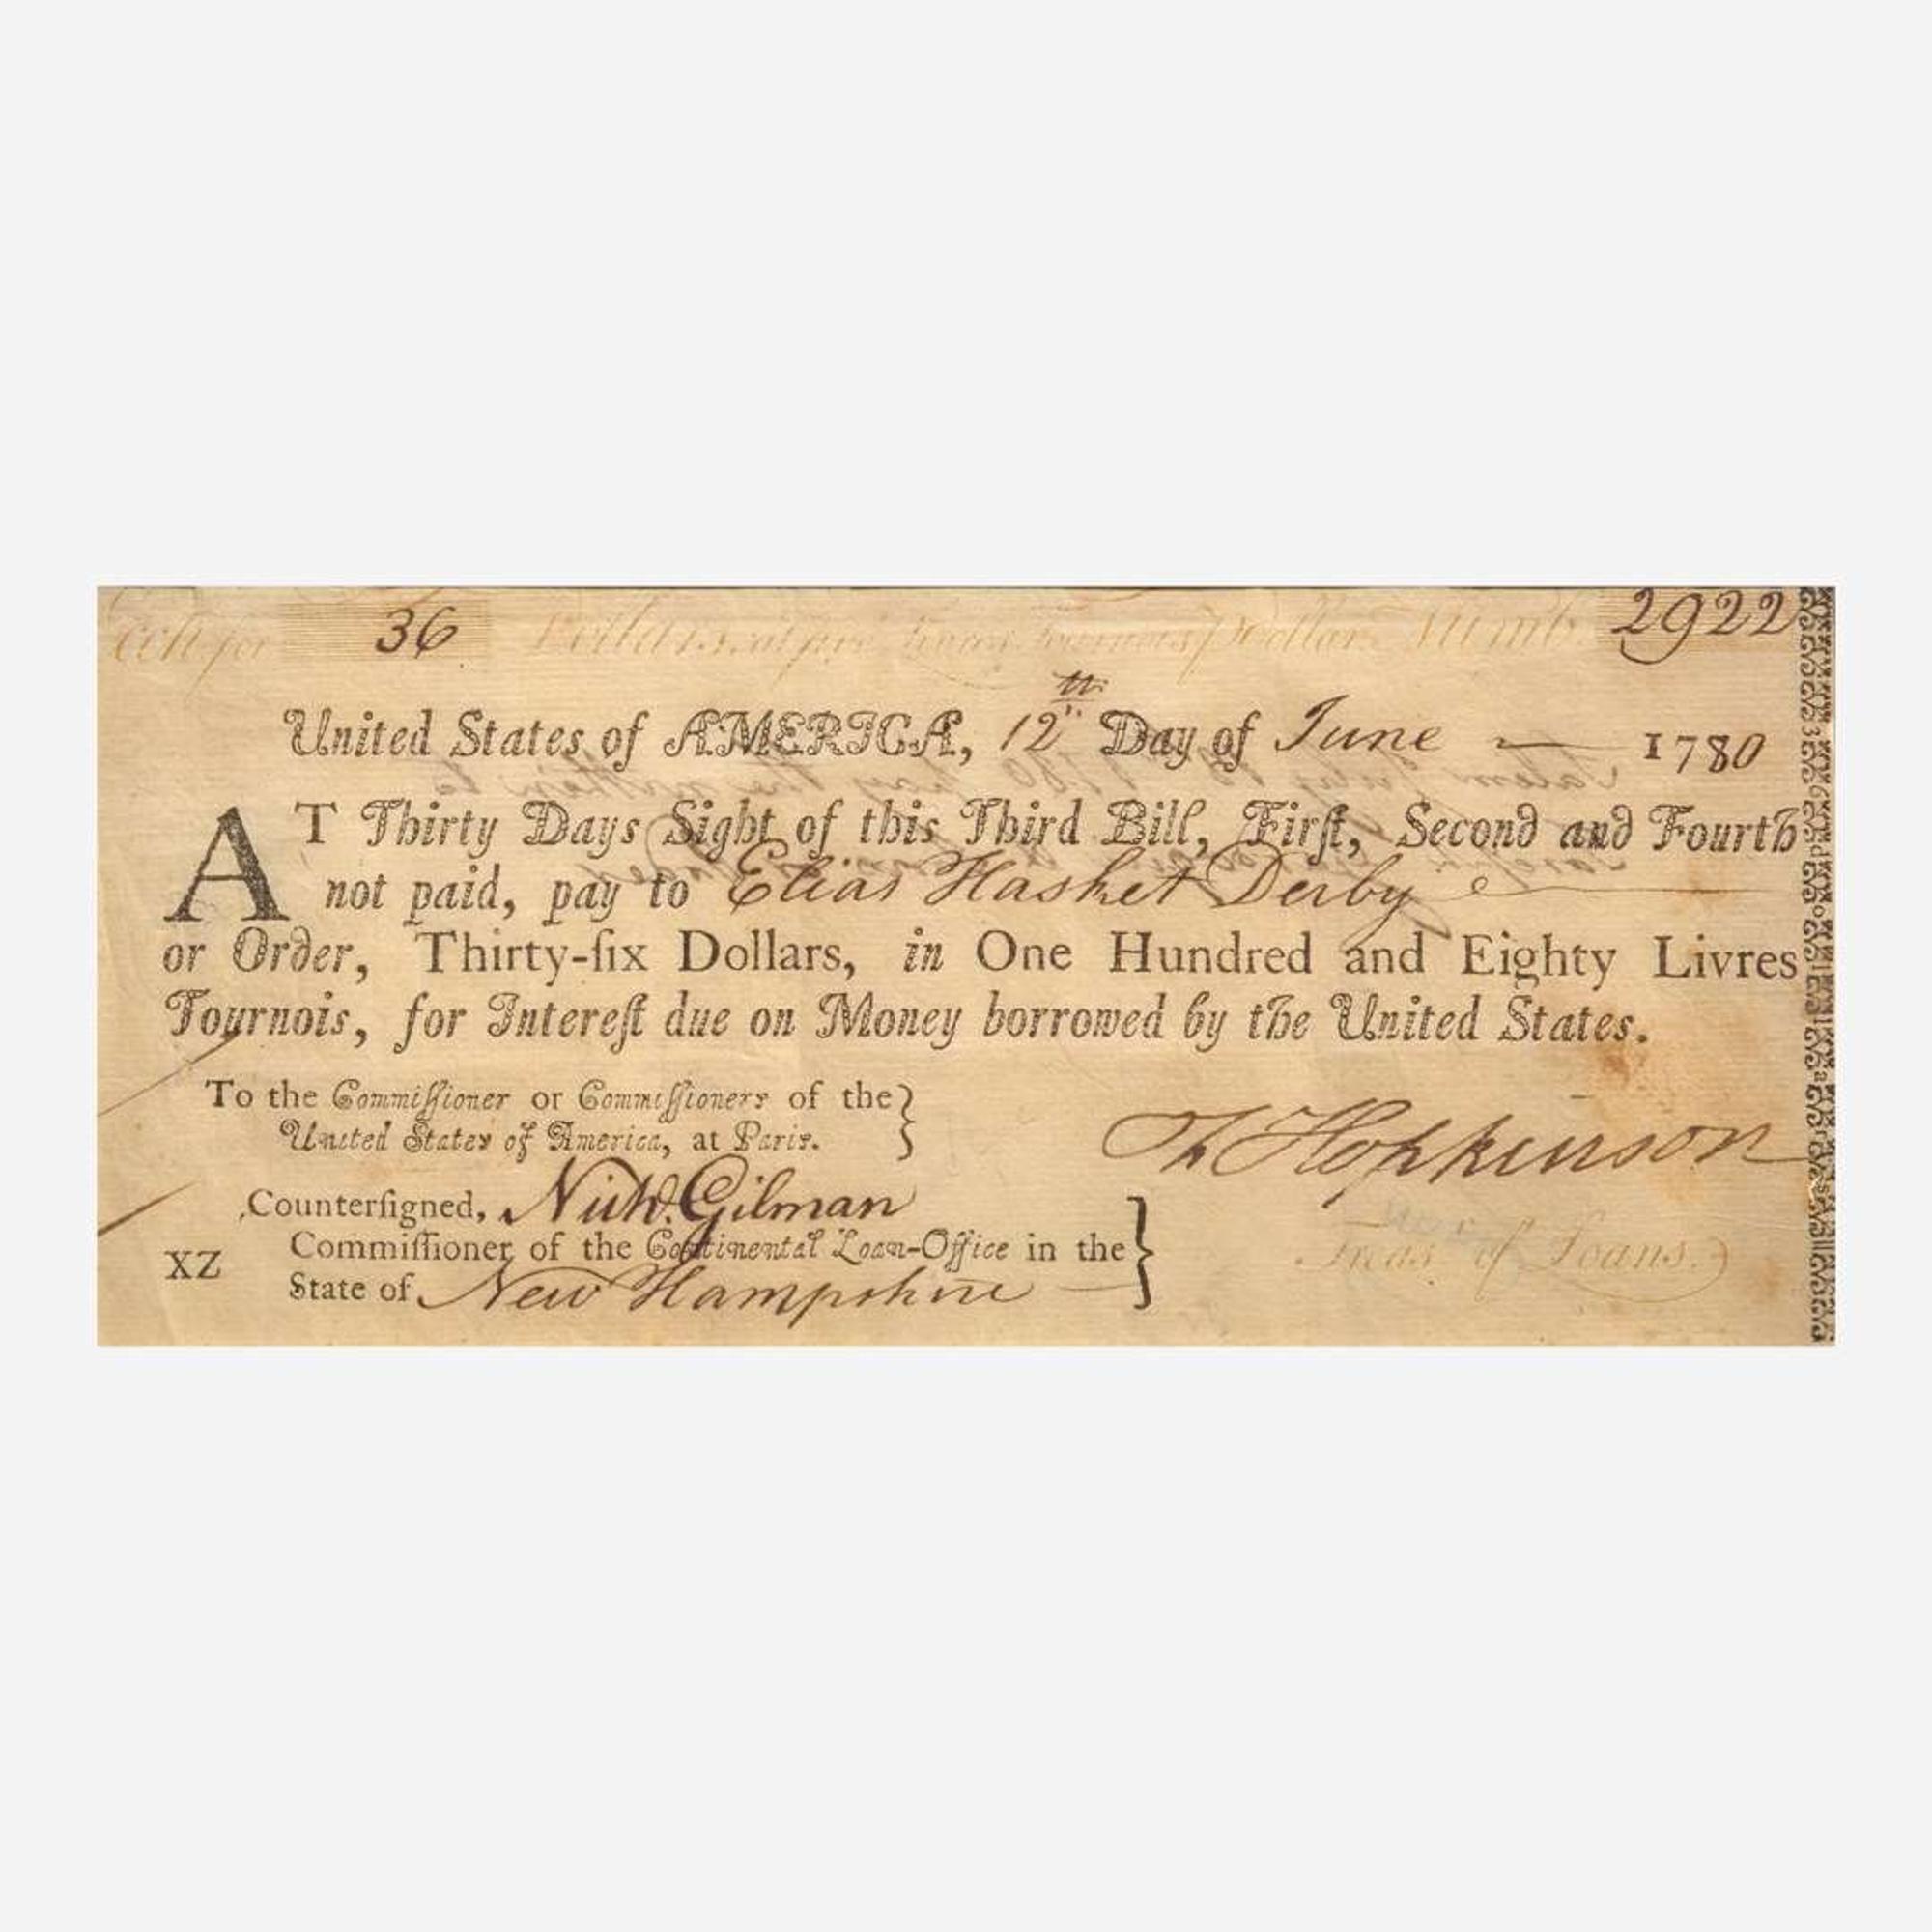 36 Dollars, at five Livres Tournois Dollar Numb. 2922
United States of AMERICA, 12th Day of June 1780
AT Thirty Days Sight of this Third Bill, Firſt, Second and Fourth
not paid, pay to Elias Hasket Derby
or Order, Thirty-ſix Dollars, in One Hundred and Eighty Livres
Tournois, for Intereſt due on Money borrowed by the United States.
To the Commiſſioner or Commiſſioners of the
United States of America, at Paris.
Hopkinson
Treas. of Loans.
Counterſigned, Nichs. Gilman
Commiſſioner of the Continental Loan-Office in the
State of New Hampshire
XZ